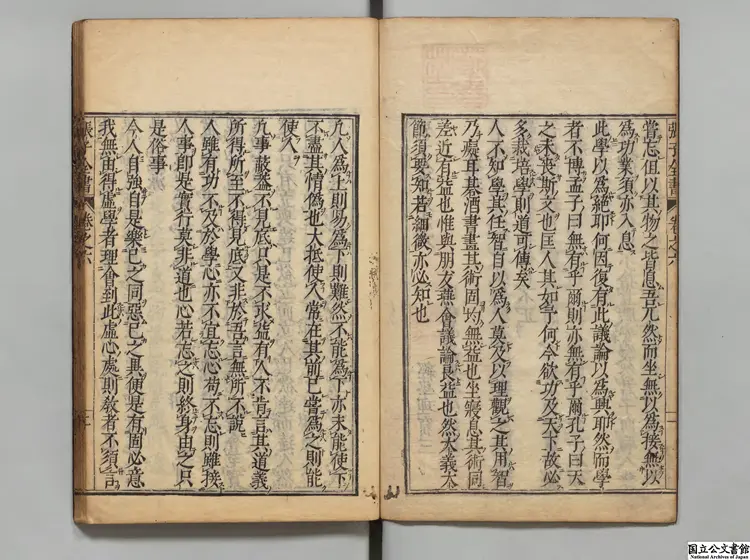 張子全書 卷之六
嘗忘但以其物之皆息吾兀然而坐無以為接無以
為功業須亦入息
此學以為絕耶何因復有此議論以為興耶然而學
者不博孟子曰無有乎爾則亦無有乎爾孔子曰天
之未喪斯文也匡人其如予何今欲功及天下故必
多栽培學則道可傳矣
人不知學其任智自以為人莫及以理觀之其用智
乃癡耳棊酒書畫其術固均無益也坐寢息其術同
差近有益也惟與朋友燕會議論良益也然大義大
節須要知若細微亦必知也
凡人為上則易為下則難然不能為下亦未能使下
不盡其情偽也大抵使人常在其前己嘗為之則能
使人
凡事蔽蓋不見底只是不求益有人不肯言其道義
所得所至不得見底又非於吾言無所不說
人雖有功不及於學心亦不宜忘心苟不忘則雖接
人事即是實行莫非道也心若忘之則終身由之只
是俗事
今人自強自是樂己之同惡己之異便是有固必意
我無由得虛學者理會到此虛心處則教者不須言
張子全書 卷之六
国立公文書館
National Archives of Japan